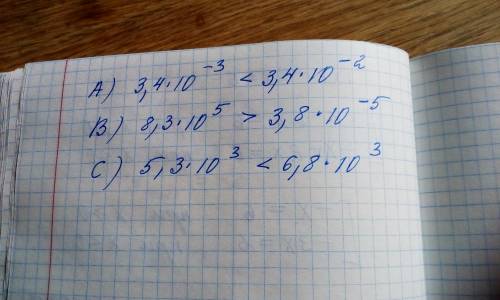 A) 3,4·10⁻³ < 3,4·10⁻²
B) 8,3·10⁵ > 3,8·10⁻⁵
C) 5,3·10³ < 6,8·10³